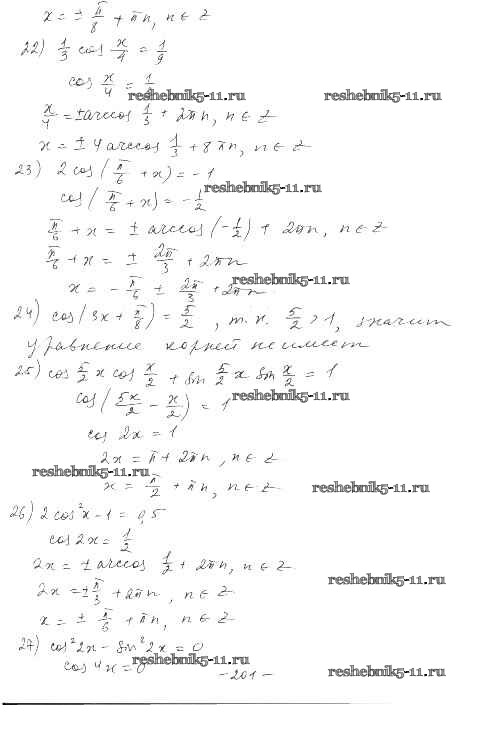 x = ± π/8 + πn, n ∈ Z
22) 1/3 cos x/4 = 1/9
cos x/4 = 1/
reshebnik5-11.ru reshebnik5-11.ru
x/4 = ± arccos 1/3 + 2πn, n ∈ Z
x = ± 4 arccos 1/3 + 8πn, n ∈ Z
23) 2 cos(π/6 + x) = -1
reshebnik5-11.ru
cos(π/6 + x) = -1/2
π/6 + x = ± arccos(-1/2) + 2πn, n ∈ Z
π/6 + x = ± 2π/3 + 2πn
reshebnik5-11.ru
x = - π/6 ± 2π/3 + 2πn
24) cos(3x + π/8) = 5/2, т.к. 5/2 > 1, значит
уравнение корней не имеет
25) cos 5/2 x cos x/2 + sin 5/2 x sin x/2 = 1
cos(5x/2 - x/2) = 1
reshebnik5-11.ru
cos 2x = 1
2x = π + 2πn, n ∈ Z
reshebnik5-11.ru
x = π/2 + πn, n ∈ Z
reshebnik5-11.ru
26) 2 cos²x - 1 = 0,5
cos 2x = 1/2
2x = ± arccos 1/2 + 2πn, n ∈ Z
reshebnik5-11.ru
2x = ± π/3 + 2πn, n ∈ Z
x = ± π/6 + πn, n ∈ Z
27) cos²2x - sin²2x = 0
cos 4x = 0
reshebnik5-11.ru
-201-
reshebnik5-11.ru